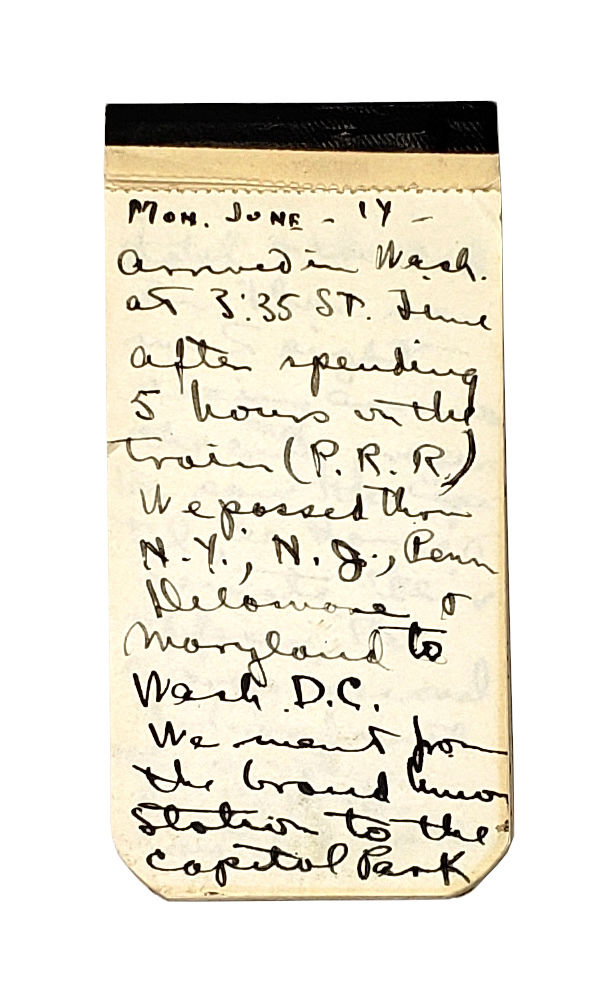 Mon. June - 14 -
arrived in Wash.
at 3:35 ST. Time
after spending
5 hours on the
train (P. R. R.)
We passed thru
N.Y., N.J., Penn
Delaware &
Maryland to
Wash D.C.
We went from
the Grand Union
Station to the
Capitol Park